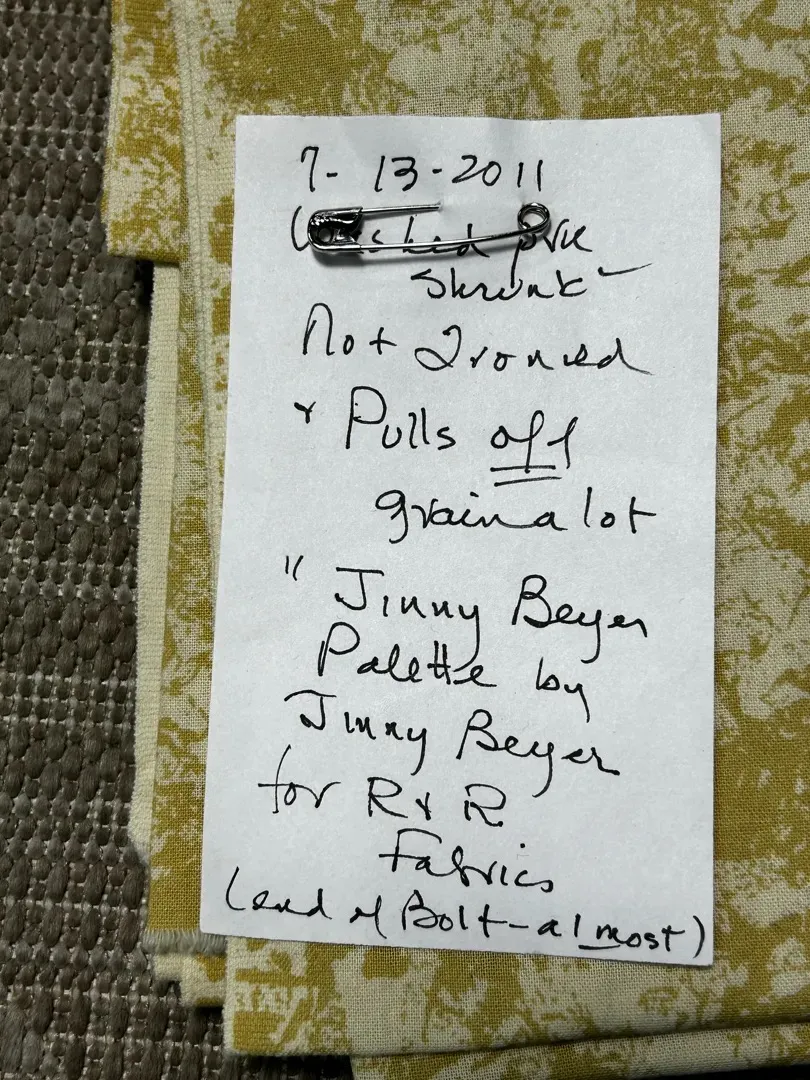 7-13-2011
Washed pre
shrunk
Not Ironed
+ Pulls off
grain a lot
" Jinny Beyer
Palette by
Jinny Beyer
for R + R
Fabrics
(end of Bolt-almost)